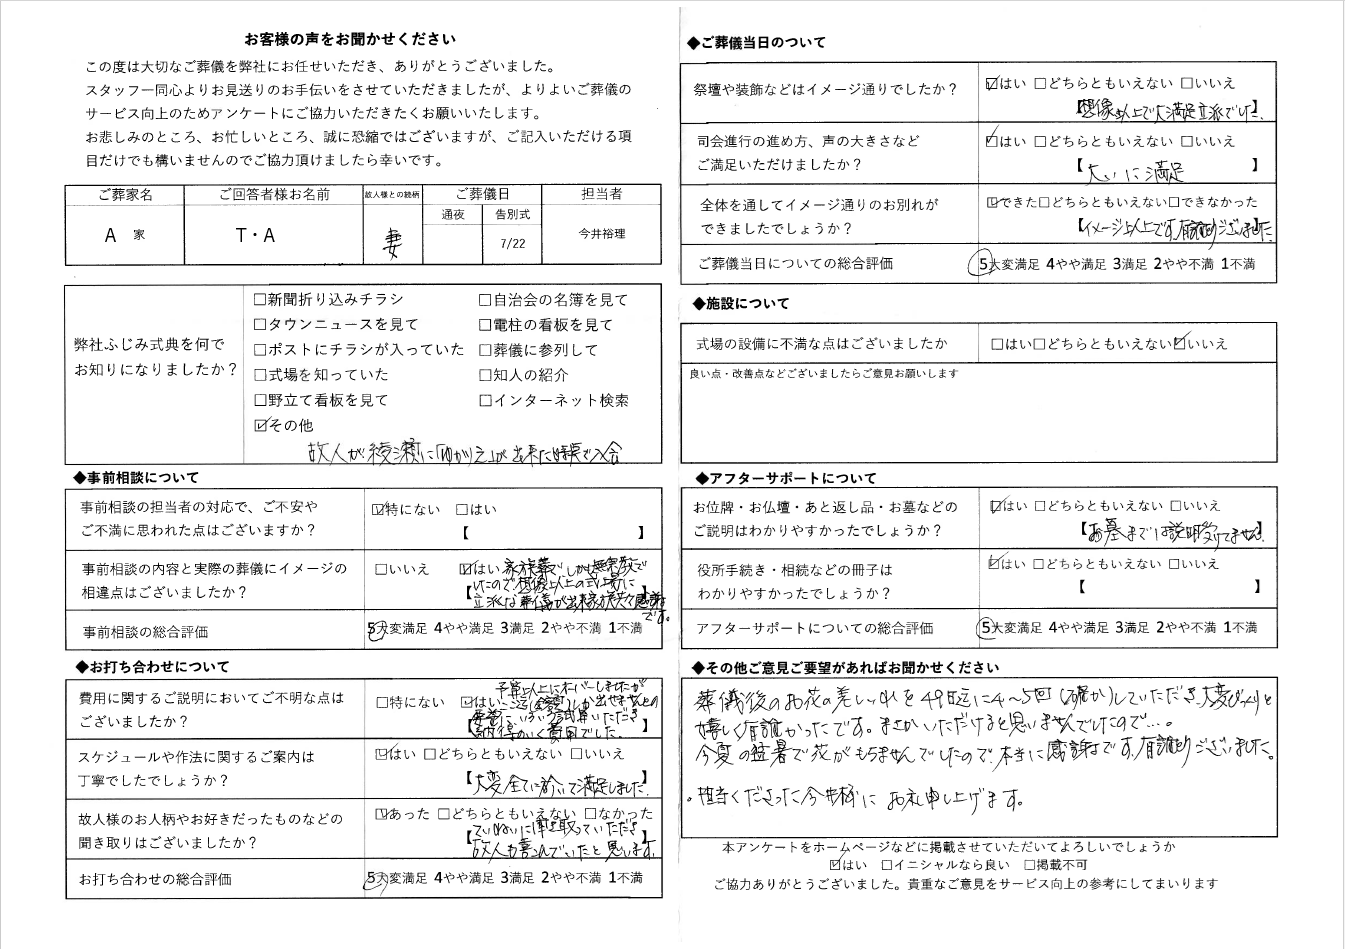 お客様の声をお聞かせください
この度は大切なご葬儀を弊社にお任せいただき、ありがとうございました。
スタッフ一同心よりお見送りのお手伝いをさせていただきましたが、よりよいご葬儀の
サービス向上のためアンケートにご協力いただきたくお願いいたします。
お悲しみのところ、お忙しいところ、誠に恐縮ではございますが、ご記入いただける項
目だけでも構いませんのでご協力頂けましたら幸いです。
ご葬家名 ご回答者様お名前 故人様との続柄 ご葬儀日 担当者
通夜 告別式
A 家 T・A 妻 7/22 今井裕理
弊社ふじみ式典を何で
お知りになりましたか?
□新聞折り込みチラシ □自治会の名簿を見て
□タウンニュースを見て □電柱の看板を見て
□ポストにチラシが入っていた □葬儀に参列して
□式場を知っていた □知人の紹介
□野立て看板を見て □インターネット検索
☑その他
故人が綾瀬に「ゆかりえ」が出来た時点で入会
◆事前相談について
事前相談の担当者の対応で、ご不安や
ご不満に思われた点はございますか?
☑特にない □はい
【 】
事前相談の内容と実際の葬儀にイメージの
相違点はございましたか?
□いいえ ☑はい 家族葬で しかも無宗教で
したので想像以上の式場に
【立派な葬儀が出来 感謝
です。】
事前相談の総合評価 5大変満足 4やや満足 3満足 2やや不満 1不満
◆お打ち合わせについて
費用に関するご説明においてご不明な点は
ございましたか?
□特にない ☑はい
予算以上にオーバーしましたが
しか出せませんとの
【納得のいく費用でした。】
スケジュールや作法に関するご案内は
丁寧でしたでしょうか?
☑はい □どちらともいえない □いいえ
【大変全てに於いて満足しました。】
故人様のお人柄やお好きだったものなどの
聞き取りはございましたか?
☑あった □どちらともいえない □なかった
【ていねいに聞き取っていただき
故人も喜こんでいたと思います。】
お打ち合わせの総合評価 5大変満足 4やや満足 3満足 2やや不満 1不満
◆ご葬儀当日のついて
祭壇や装飾などはイメージ通りでしたか?
☑はい □どちらともいえない □いいえ
【想像以上で大満足立派でした。】
司会進行の進め方、声の大きさなど
ご満足いただけましたか?
☑はい □どちらともいえない □いいえ
【大いに満足】
全体を通してイメージ通りのお別れが
できましたでしょうか?
☑できた□どちらともいえない□できなかった
【イメージ以上です。有難うございました。】
ご葬儀当日についての総合評価 5大変満足 4やや満足 3満足 2やや不満 1不満
◆施設について
式場の設備に不満な点はございましたか □はい□どちらともいえない☑いいえ
良い点・改善点などございましたらご意見お願いします
◆アフターサポートについて
お位牌・お仏壇・あと返し品・お墓などの
ご説明はわかりやすかったでしょうか?
☑はい □どちらともいえない □いいえ
【お墓までは説明受けてません。】
役所手続き・相続などの冊子は
わかりやすかったでしょうか?
☑はい □どちらともいえない □いいえ
【 】
アフターサポートについての総合評価 5大変満足 4やや満足 3満足 2やや不満 1不満
◆その他ご意見ご要望があればお聞かせください
葬儀後のお花の差し入れを49日迄に4〜5回(確か)していただき、大変びっくりと
嬉しく有難かったです。まさかいただけると思いませんでしたので…。
今夏の猛暑で花がもちませんでしたので、本当に感謝です。有難うございました。
。担当くださった今井様に お礼申し上げます。
本アンケートをホームページなどに掲載させていただいてよろしいでしょうか
☑はい □イニシャルなら良い □掲載不可
ご協力ありがとうございました。貴重なご意見をサービス向上の参考にしてまいります